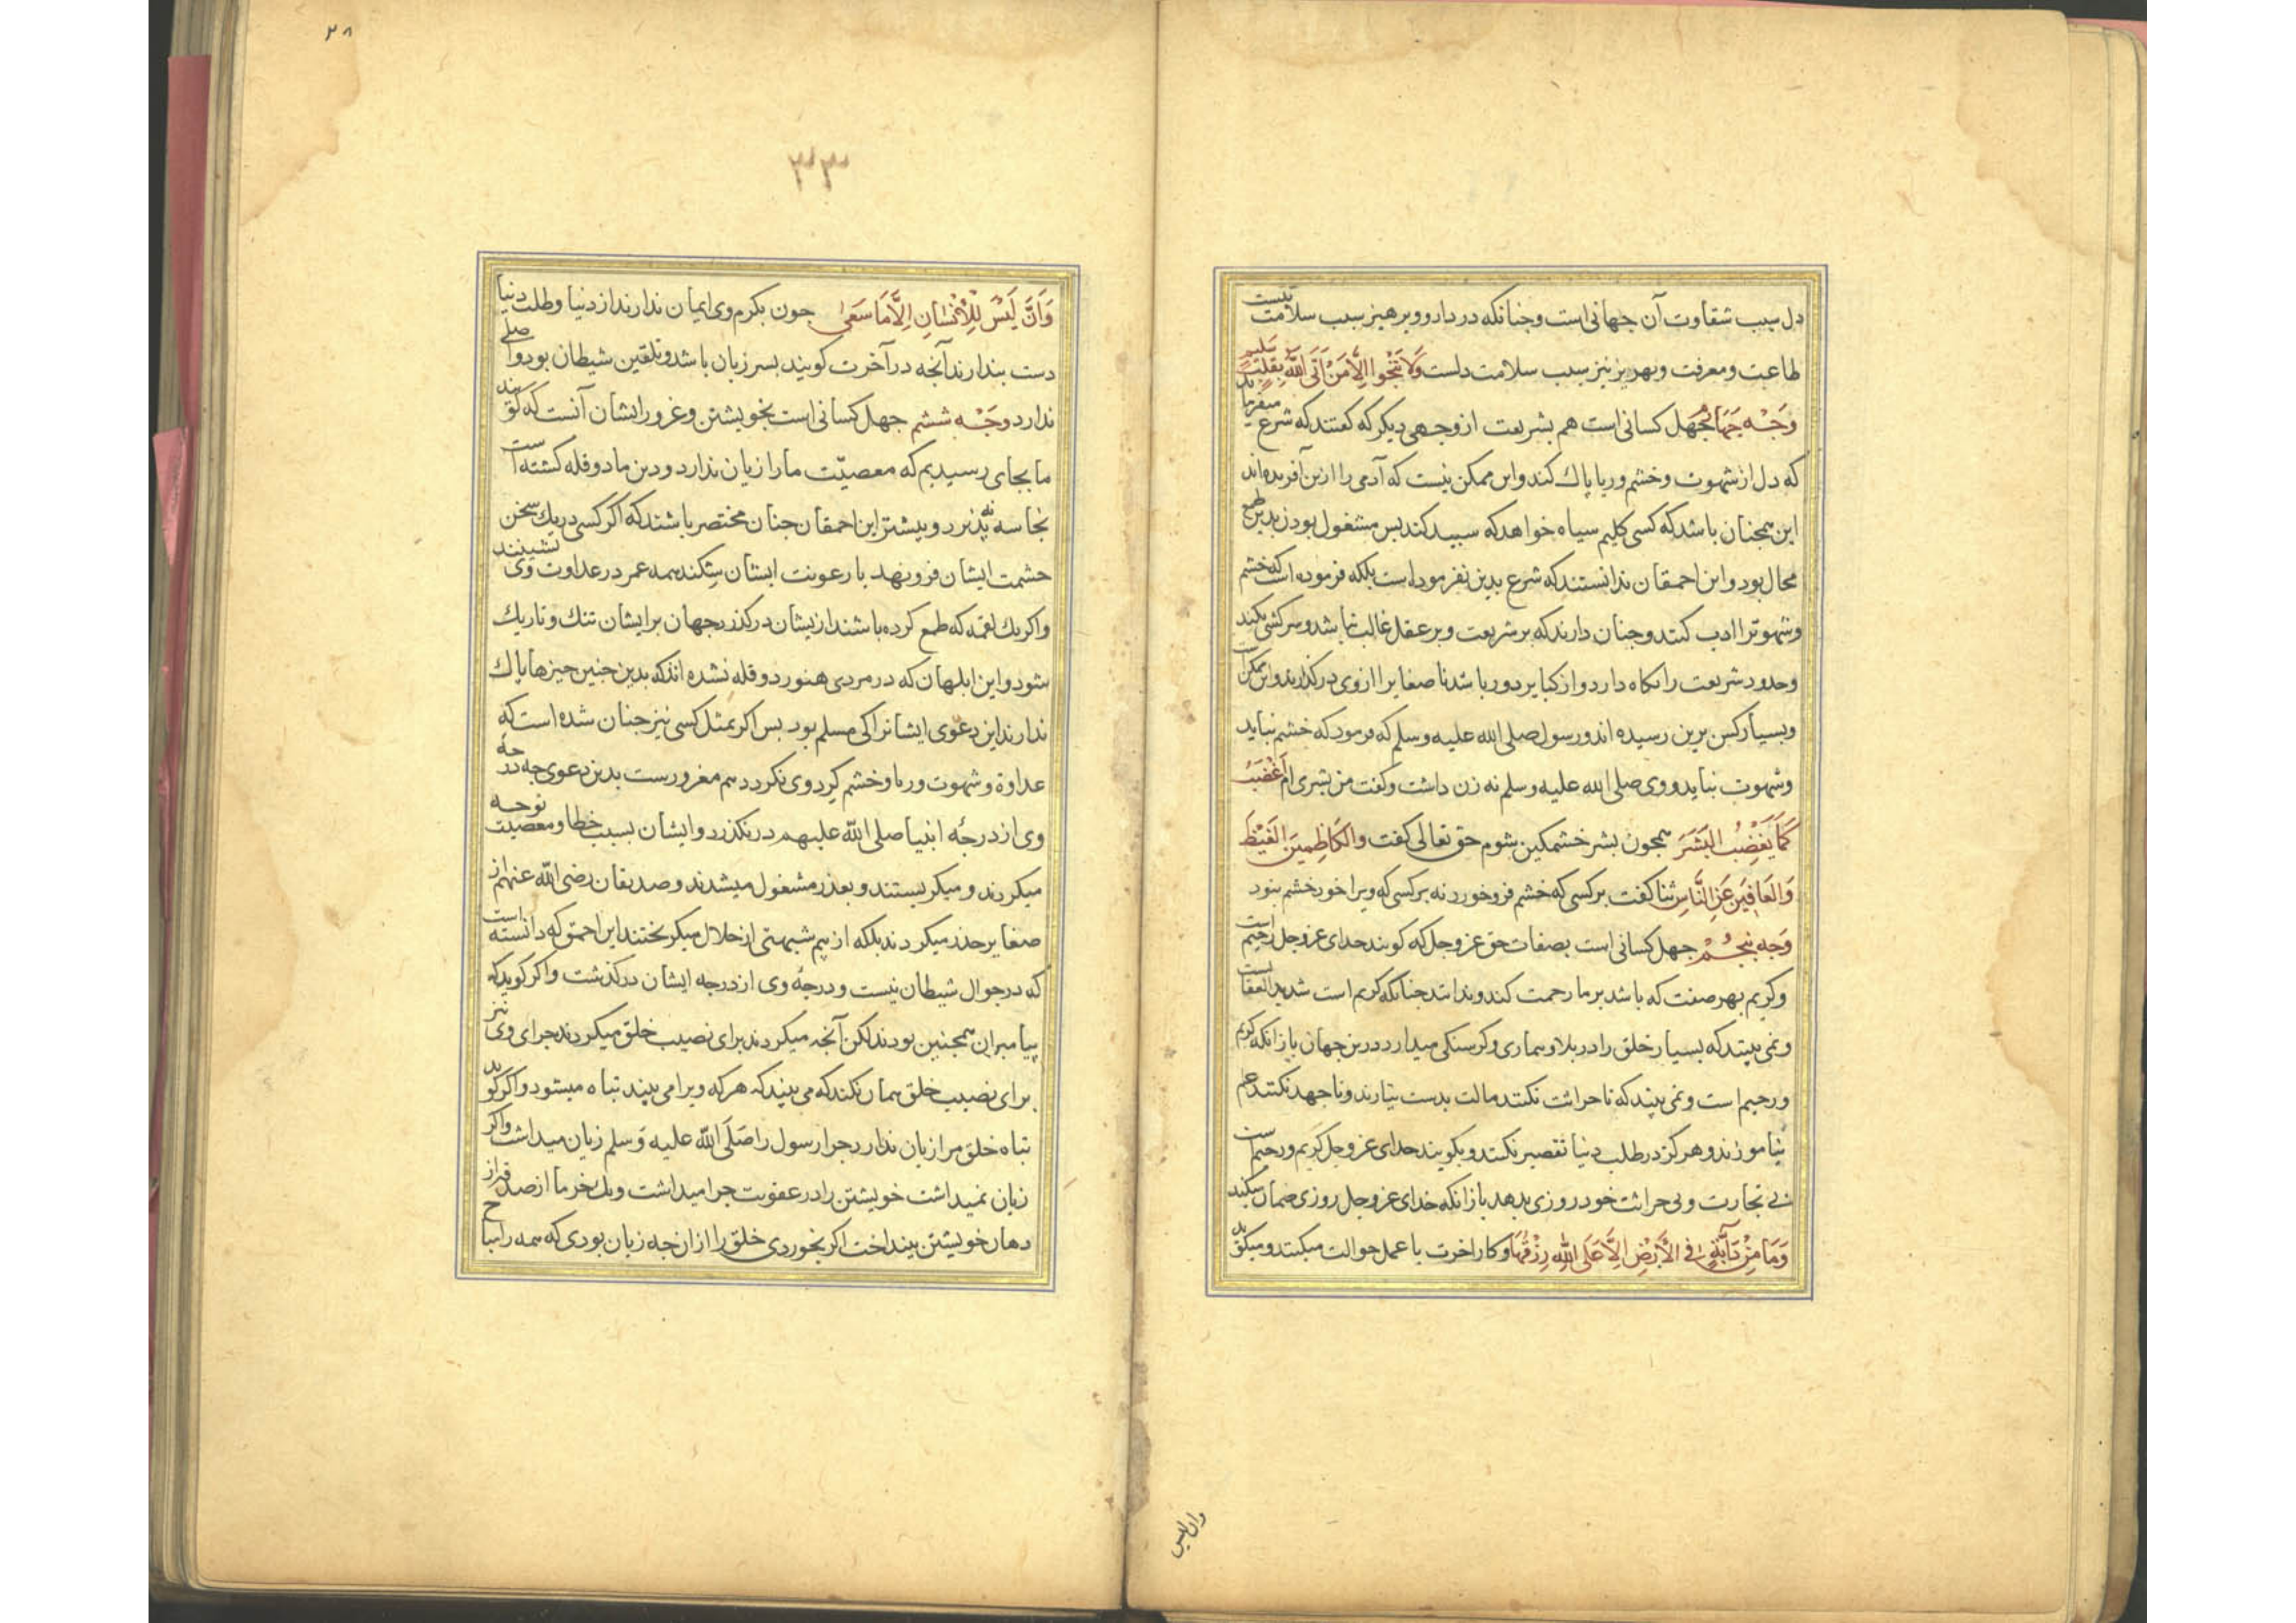 دل سبب شقاوت آن جهانی است و جنانکه در دارو و برهیز سبب سلامت نیست
طاعت و معرفت و بهریز نیز سبب سلامت دلست وَلَا تَنْجُوا اِلَّا مَنْ اَتَى اللّٰهَ بِقَلْبٍ سَلِیمٍ
وَجْه جَهَارُم جهل کسانی است هم بشریعت از وجهی دیکر که کفتند که شرع میفرماید
که دل از شهوت و خشم و ریا پاك کند و این ممکن نیست که آدمی را ازین آفریده اند
این همجنان باشد که کسی کلیم سیاه خواهد که سبید کند بس مشغول بودن بدین طمع
محال بود و این احمقان ندانستند که شرع بدین نفرموداست بلکه فرموده است که خشم
و شهوترا ادب کنند و جنان دارند که بر شریعت و بر عقل غالب نباشد و سرکشی نکند
و حدود شریعت را نکاه دارد و از کبایر دور باشد تا صغایر را از وی درکذارند و این ممکن است
و بسیار کس برین رسیده اند و رسول صلی الله علیه وسلم که فرمود که خشم نباید
و شهوت نباید و وی صلی الله علیه وسلم نه زن داشت و کفت من بشری ام اَغْضَبُ
کَمَا یَغْضِبُ البَشَرَ همجون بشر خشمکین بشوم حق تعالی کفت والکَاظِمِینَ الغَیْظَ
وَالعَافِینَ عَنِ النَّاسِ ثنا کفت بر کسی که خشم فرو خورد نه بر کسی که ویرا خود خشم نبود
وَجه بنجُمْ جهل کسانی است بصفات حق عز و جل که کویند خدای عز و جل رحیم است
و کریم بهر صفت که باشد بر ما رحمت کند و ندانند جنانکه کریم است شدید العقابست
و نمی بینند که بسیار خلق را در بلا و بیماری و کرسنکی میدارد درین جهان بازانکه کریم
و رحیم است و نمی بینند که تا حراثت نکنند مالت بدست نیارند و تا جهد نکنند علم
نیاموزند و هرکز در طلب دنیا تقصیر نکنند و بکویند خدای عز و جل کریم و رحیم است
بی تجارت و بی حراثت خود روزی بدهد بازانکه خدای عز و جل روزی ضمان میکند
وَمَا مِنْ دَآبَّةٍ فِی الأَرْضِ اِلَّا عَلَى اللّٰهِ رِزْقُهَا و کار اخرت با عمل حوالت میکنند و میکوید
وان لیس
۲۸
۳۳
وَاَنَّ لَیْسَ لِلْاِنْسَانِ اِلَّا مَا سَعَى جون بکرم وی ایمان ندارند از دنیا و طلب دنیا
دست بندارند آنجه در آخرت کویند بسر زبان باشد و تلقین شیطان بود و اصلی
ندارد وَجْه ششم جهل کسانی است بخویشتن و غرور ایشان آنست که کویند
ما بجای رسیدیم که معصیّت ما را زیان ندارد و دین ما دو قله کشته است
نجاسه نه پذیرد و بیشتر این احمقان جنان مختصر باشند که اکر کسی در یك سخن
حشمت ایشان فرو نهد یا رعونت ایشان بشکند همه عمر در عداوت وی نشینند
و اکر یك لقمه که طمع کرده باشند از یشان در کذرد جهان بر ایشان تنك و تاریك
شود و این ابلهان که در مردی هنوز دو قله نشده اند که بدین جنین جیزها باك
ندارند این دعوی ایشانرا کی مسلم بود بس اکر بمثل کسی نیز جنان شده است که
عداوة و شهوت و ریا و خشم کرد وی نکردد هم مغرورست بدین دعوی جه درجهٔ
وی از درجهٔ انبیا صلی اللّٰه علیهم در نکذرد و ایشان بسبب خطا و معصیت نوحه
میکردند و میکریستند و بعذر مشغول میشدند و صدیقان رضی اللّٰه عنهم از
صغایر حذر میکردند بلکه از بیم شبهتی از حلال میکریختند این احمق که دانسته است
که در جوال شیطان نیست و درجهٔ وی از درجه ایشان درکذشت و اکر کوید که
پیامبران همجنین بودند لکن آنجه میکردند برای نصیب خلق میکردند جرا وی نیز
برای نصیب خلق همان نکند که می بیند که هر که ویرا می بیند تباه میشود و اکر کوید
تباه خلق مرا زیان ندارد جرا رسول را صَلَى اللّٰه علیه وَسلم زیان میداشت و اکر
زیان نمیداشت خویشتن را در عقوبت جرا میداشت و یك خرما از صدقه از
دهان خویشتن بینداخت اکر بخوردی خلق را ازان جه زیان بودی که همه را مباح